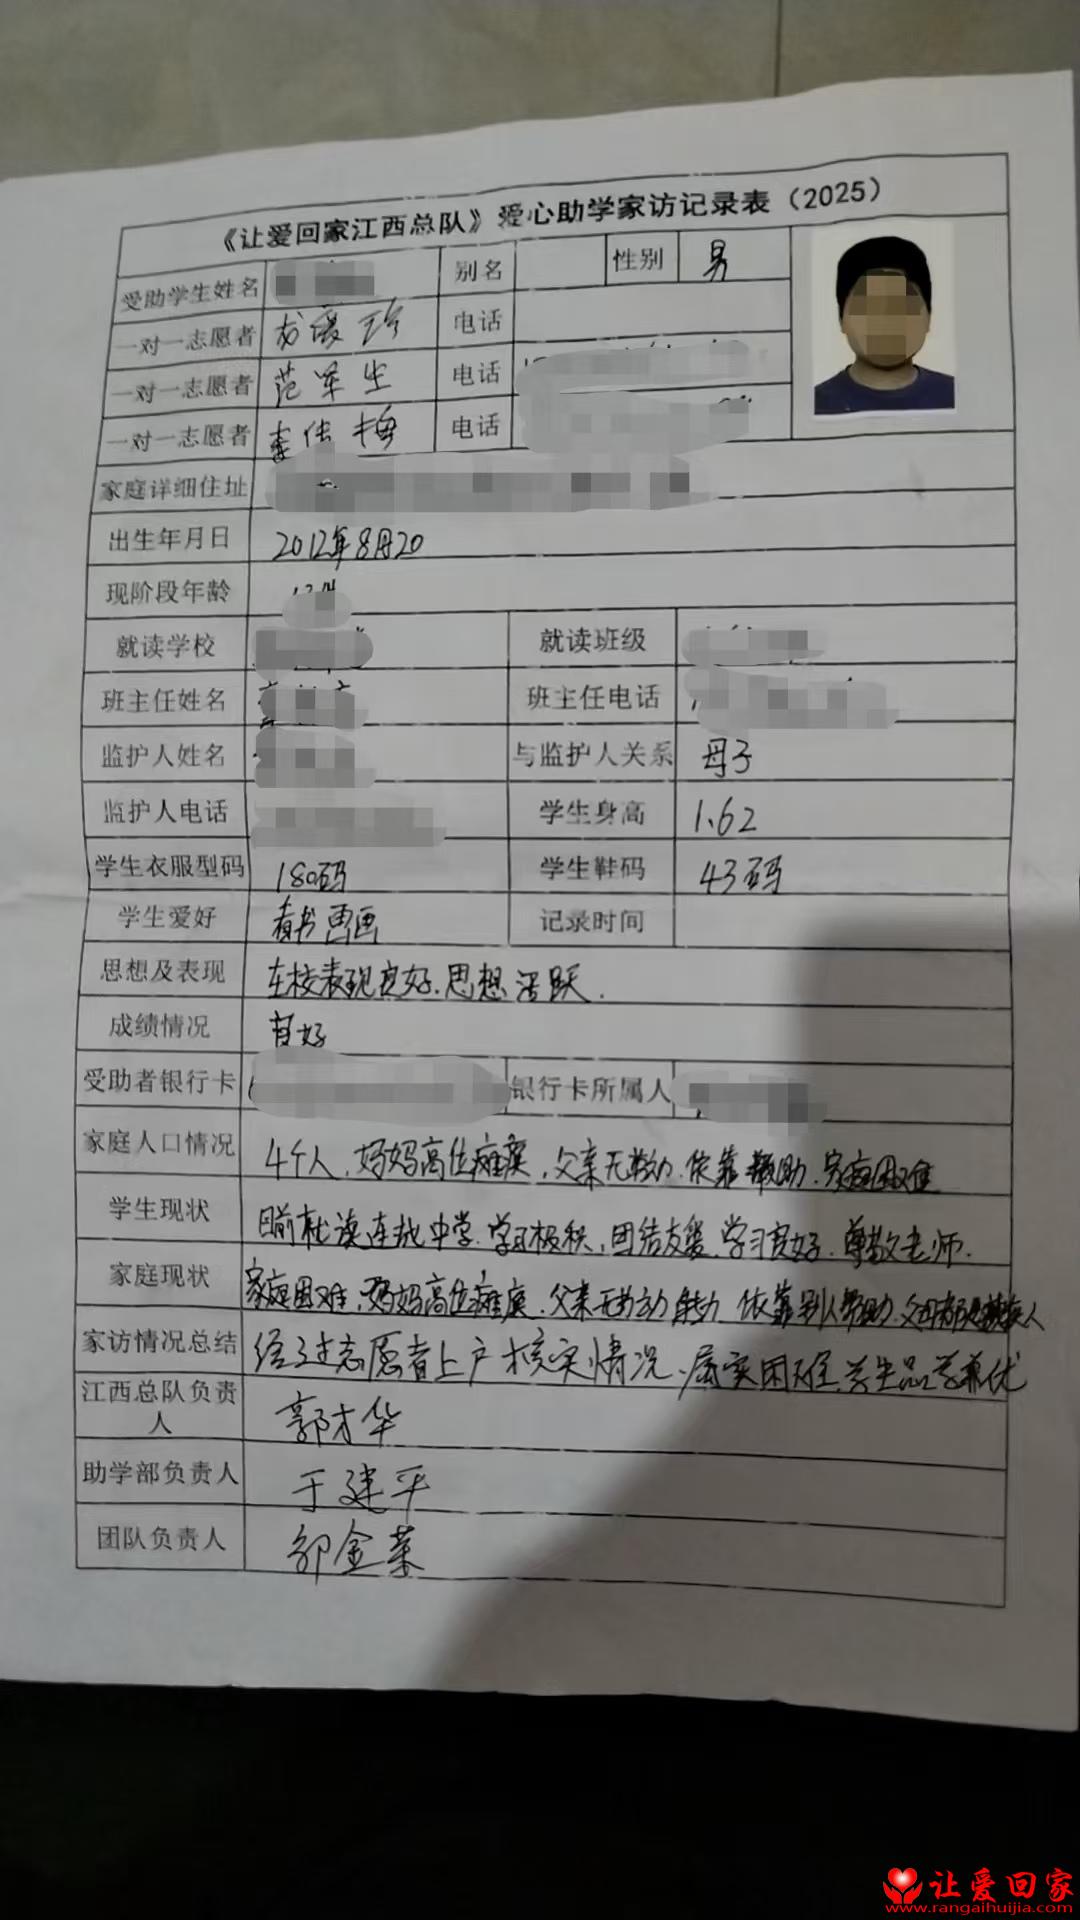 《让爱回家江西总队》爱心助学家访记录表（2025）
受助学生姓名 别名 性别 男
一对一志愿者 电话
一对一志愿者 范军生 电话
一对一志愿者 李佳梅 电话
家庭详细住址
出生年月日 2012年8月20
现阶段年龄
就读学校 就读班级
班主任姓名 班主任电话
监护人姓名 与监护人关系 母子
监护人电话 学生身高 1.62
学生衣服型码 180码 学生鞋码 43码
学生爱好 看书 画画 记录时间
思想及表现 在校表现良好.思想活跃.
成绩情况 良好
受助者银行卡 银行卡所属人
家庭人口情况 4个人.妈妈高位瘫痪.父亲无劳力.依靠帮助.家庭困难
学生现状 目前就读 中学.学习积极.团结友爱.学习良好.尊敬老师.
家庭现状 家庭困难.妈妈高位瘫痪.父亲无劳动能力.依靠别人帮助.父母都是残疾人
家访情况总结 经过志愿者上户核实情况.属实困难.学生品学兼优
江西总队负责人 郭才华
助学部负责人 于建平
团队负责人 邹金莱
让爱回家
www.rangaihuijia.com